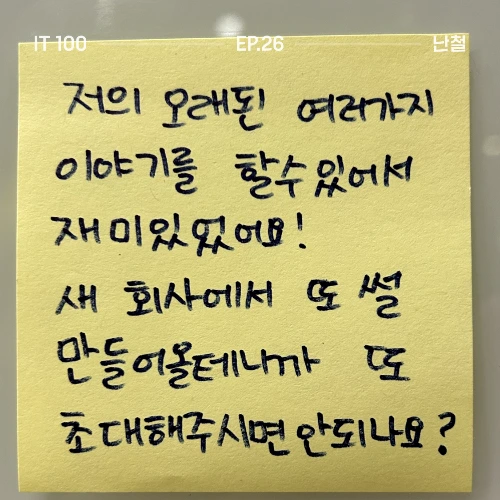 IT 100 EP.26 난철
저의 오래된 여러가지
이야기를 할수있어서
재미있었어요!
새 회사에서 또 썰
만들어올테니까 또
초대해주시면 안되나요?